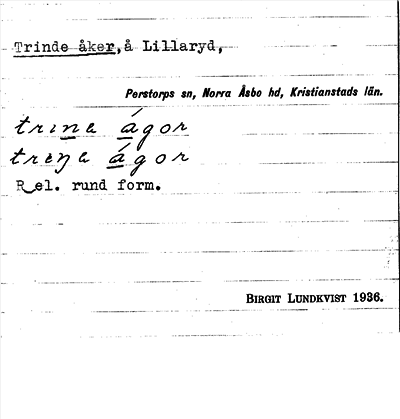 Trinde åker, å Lillaryd,
Perstorps sn, Norra Åsbo hd, Kristianstads län.
trine ágor
treŋe ágor
Rel. rund form.
BIRGIT LUNDKVIST 1936.